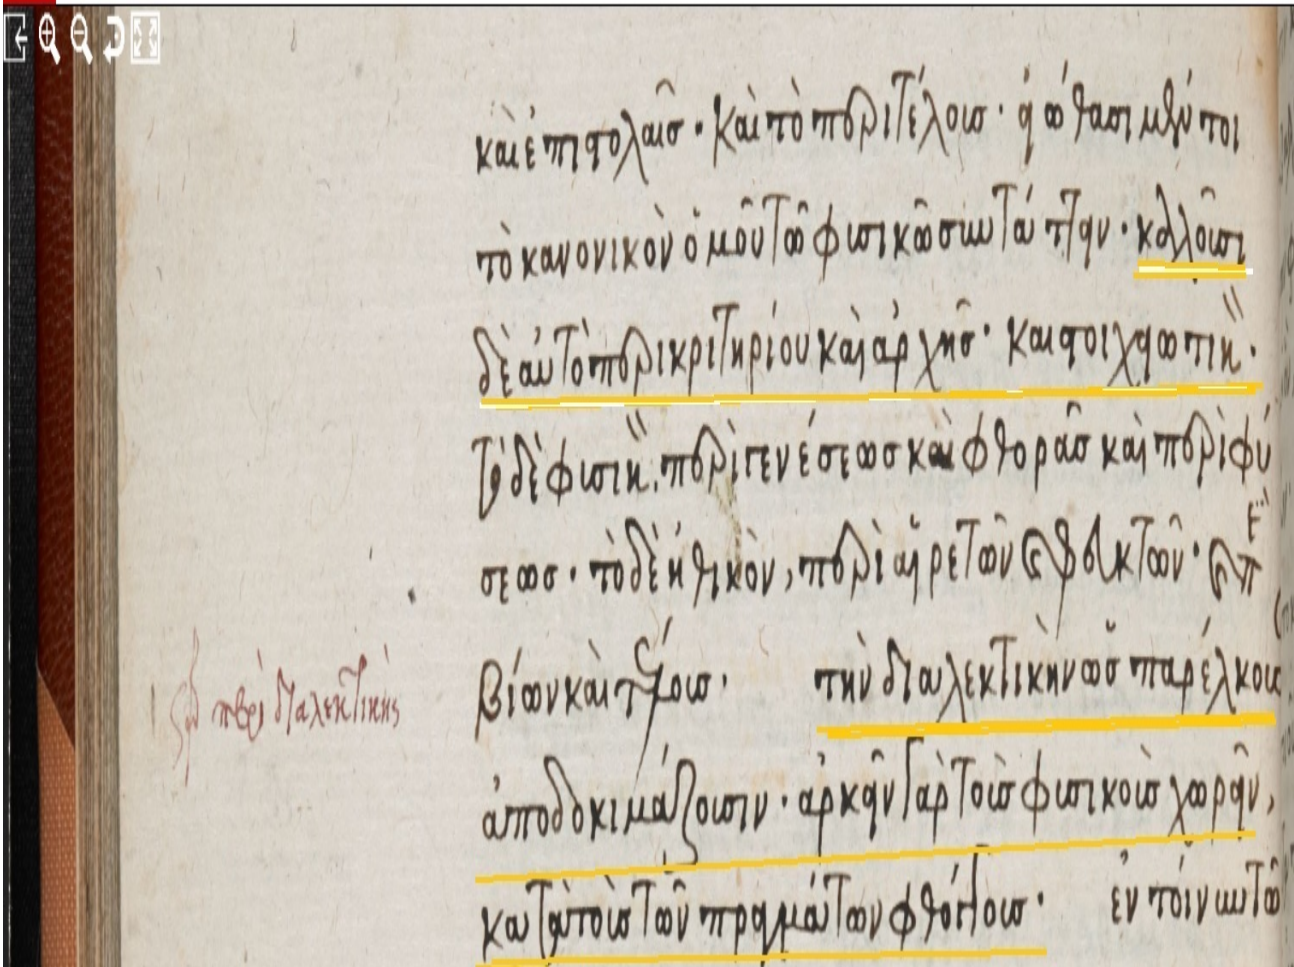 καὶ ἐπιστολαῖσ · καὶ τὸ περὶ τέλουσ · εἰώθασι μέντοι
τὸ κανονικὸν ὁμοῦ τῶ φυσικῶ συντάττειν · καλοῦσι
δὲ αὐτὸ περὶ κριτηρίου καὶ ἀρχῆσ · καὶ στοιχειωτικ ·
τὸ δὲ φυσικ, περὶ γενέσεωσ καὶ φθορᾶσ καὶ περὶ φύ
σεωσ · τὸ δὲ ἠθικὸν, περὶ αἱρετῶν καὶ φευκτῶν · καὶ πε
περὶ διαλεκτικῆς
βίων καὶ τέλουσ · τὴν διαλεκτικὴν ὡσ παρέλκουσ
ἀποδοκιμάζουσιν · ἀρκεῖν γὰρ τοὺσ φυσικοὺσ χωρεῖν,
κατὰ τοὺσ τῶν πραγμάτων φθόγγουσ · ἐν τοίνυν τῶ